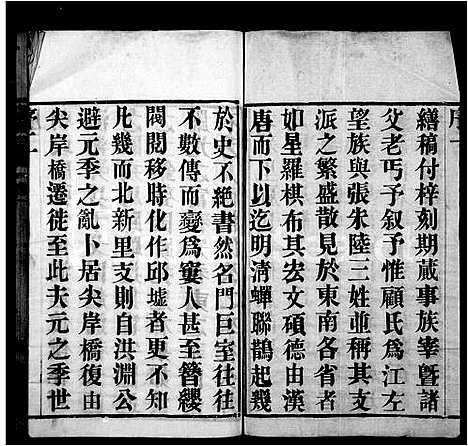 序一
繕稿付梓刻期蕆事族宰暨諸
父老丐予叙予惟顧氏爲江左
望族與張朱陸三姓並稱其支
派之繁盛散見於東南各省者
如星羅棋布其宏文碩德由漢
唐而下以迄明清蟬聯鵲起幾
於史不絕書然名門巨室往往
不數傳而變爲窶人甚至簪纓
閥閱移時化作邱墟者更不知
凡幾而北新里支則自洪淵公
避元季之亂卜居尖岸橋復由
尖岸橋遷徙至此夫元之季世
序二